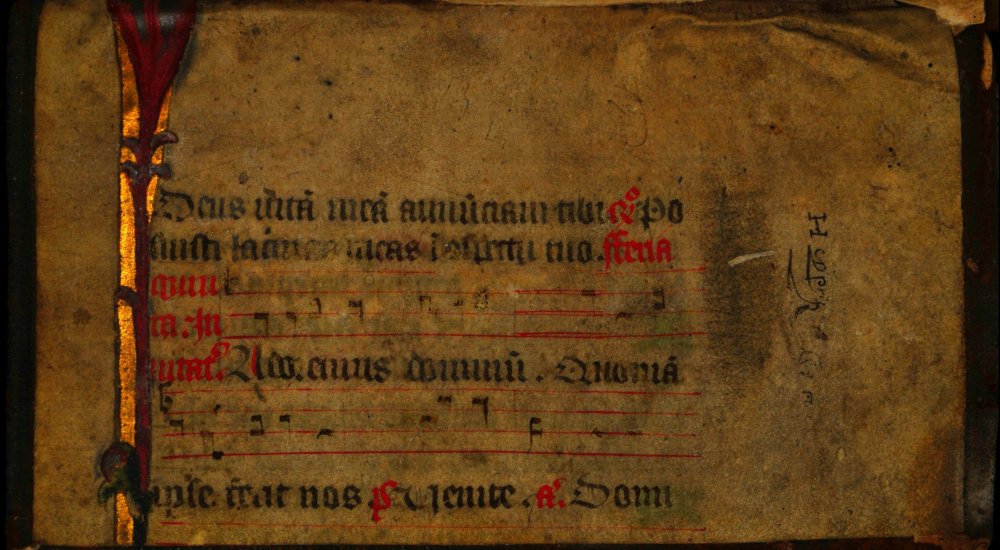 Deus vitā meā annūciaui tibi. Po
suisti lacrimas meas ī ꝯspectu tuo. feria
quin
ta. In
uitat. Ado. emus dominū. Quoniā
ipse fecit nos. ps. Uenite. a. Domi